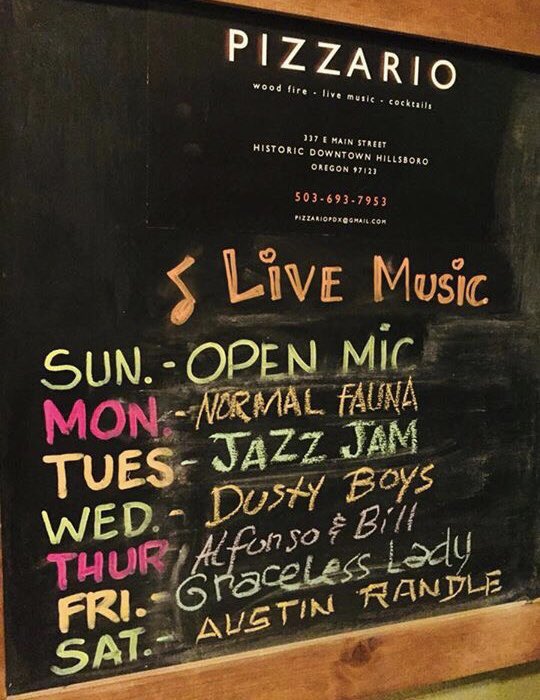 PIZZARIO
wood fire - live music - cocktails
337 E MAIN STREET
HISTORIC DOWNTOWN HILLSBORO
OREGON 97123
503-693-7953
PIZZARIOPDX@GMAIL.COM
LIVE MUSIC
SUN. - OPEN MIC
MON. - NORMAL FAUNA
TUES - JAZZ JAM
WED. - DUSTY BOYS
THUR Alfonso & Bill
FRI. - Graceless Lady
SAT. - AUSTIN RANDLE